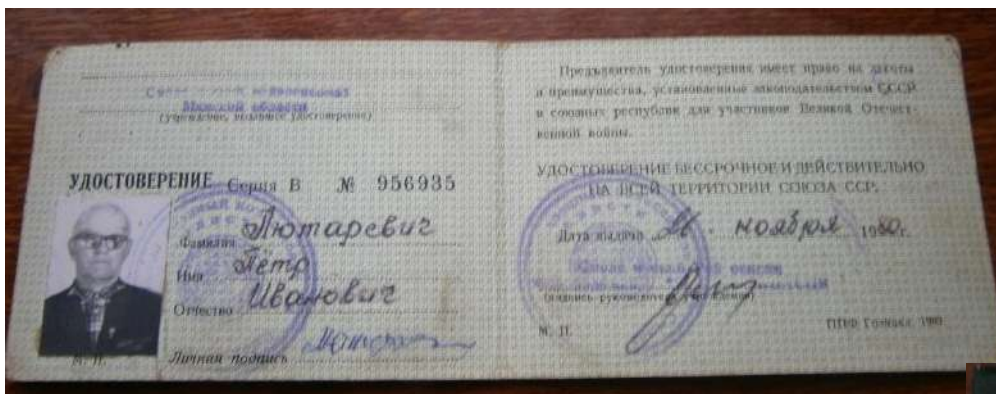 Минской области
(учреждение, выдавшее удостоверение)
УДОСТОВЕРЕНИЕ Серия В № 956935
Фамилия Лютаревич
Имя Пётр
Отчество Иванович
Личная подпись
М. П.
Предъявитель удостоверения имеет право на льготы
и преимущества, установленные законодательством СССР
и союзных республик для участников Великой Отечест-
венной войны.
УДОСТОВЕРЕНИЕ БЕССРОЧНОЕ И ДЕЙСТВИТЕЛЬНО
НА ВСЕЙ ТЕРРИТОРИИ СОЮЗА ССР.
Дата выдачи 26 ноября 1980г.
М. П.
Гознака. 1980